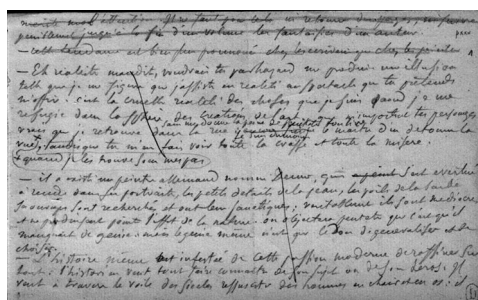 moitié mon attention
jusqu'à la fin d'un volume les fantaisies d'un auteur.
— cette tendance est bien plus prononcée chez les écrivains que chez les peintres
— Eh réaliste maudit, voudrais tu par hasard me produire une illusion
telle que je me figure que j'assiste en réalité au spectacle que tu prétends
m'offrir. c'est la cruelle réalité des objets que je fuis quand je me
refugie dans la sphère des créations de l'art. que m'importent tes personnages
vrais que je retrouve dans la rue
rue, sans que tu m'en fasses voir toute la crasse et toute la misère.
quand je les trouve sous mes pas
— il a existé un peintre allemand nommé Denner, qui s'est évertué
à rendre dans ses portraits, les petits détails de la peau, les poils de la barbe
ses ouvrages sont recherchés et ont leurs fanatiques. véritablement ils sont médiocres
et ne produisent point l'effet de la nature. on objectera peut-être que c'est qu'il
manquait de génie: mais le génie même n'est que le don de généraliser et de
choisir.
— L'histoire même est infectée de cette passion moderne de raffiner sur
tout: l'historien veut tout faire connaître de son sujet ou de son héros. Il
veut à travers le voile des siècles ressusciter des hommes en chair et en os: il